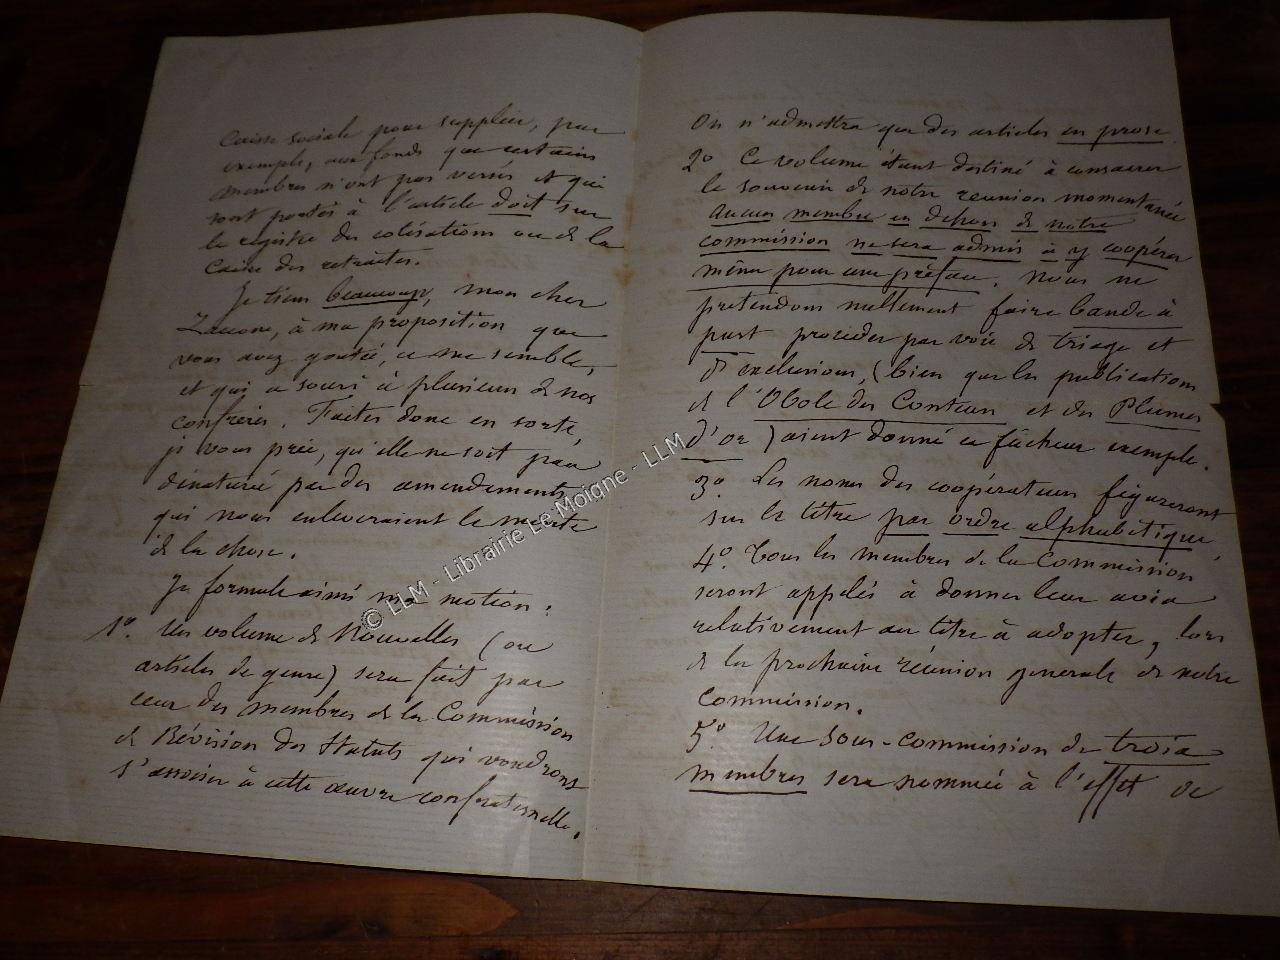 Caisse sociale pour suppléer, par
exemple, aux fonds que certains
membres n'ont pas versés et qui
sont portés à l'article doit sur
le registre des cotisations ou de la
Caisse des retraites.
Je tiens beaucoup, mon cher
Zaccone, à ma proposition que
vous avez goutée, ce me semble,
et qui a souri à plusieurs de nos
confrères. Faites donc en sorte,
je vous prie, qu'elle ne soit pas
dénaturée par des amendements
qui nous enleveraient le mérite
de la chose.
Je formule ainsi ma motion :
1º. Un volume de Nouvelles (ou
articles de genre) sera fait par
ceux des membres de la Commission
de Révision des Statuts qui voudront
s'associer à cette œuvre confraternelle.
On n'admettra que des articles en prose.
2º Ce volume étant destiné à consacrer
le souvenir de notre réunion momentanée
aucun membre en dehors de notre
commission ne sera admis à y coopérer
même pour une préface. Nous ne
prétendons nullement faire bande à
part procéder par voie de triage et
d'exclusions, (bien que les publications
de l'Obole des Conteurs et des Plumes
d'or) aient donné ce fâcheux exemple.
3º. Les noms des coopérateurs figureront
sur le titre par ordre alphabétique.
4º. Tous les membres de la Commission
seront appelés à donner leur avis
relativement au titre à adopter, lors
de la prochaine réunion generale de notre
Commission.
5º. Une sous-commission de trois
membres sera nommée à l'effet de
© LLM - Librairie Le Moigne - LLM